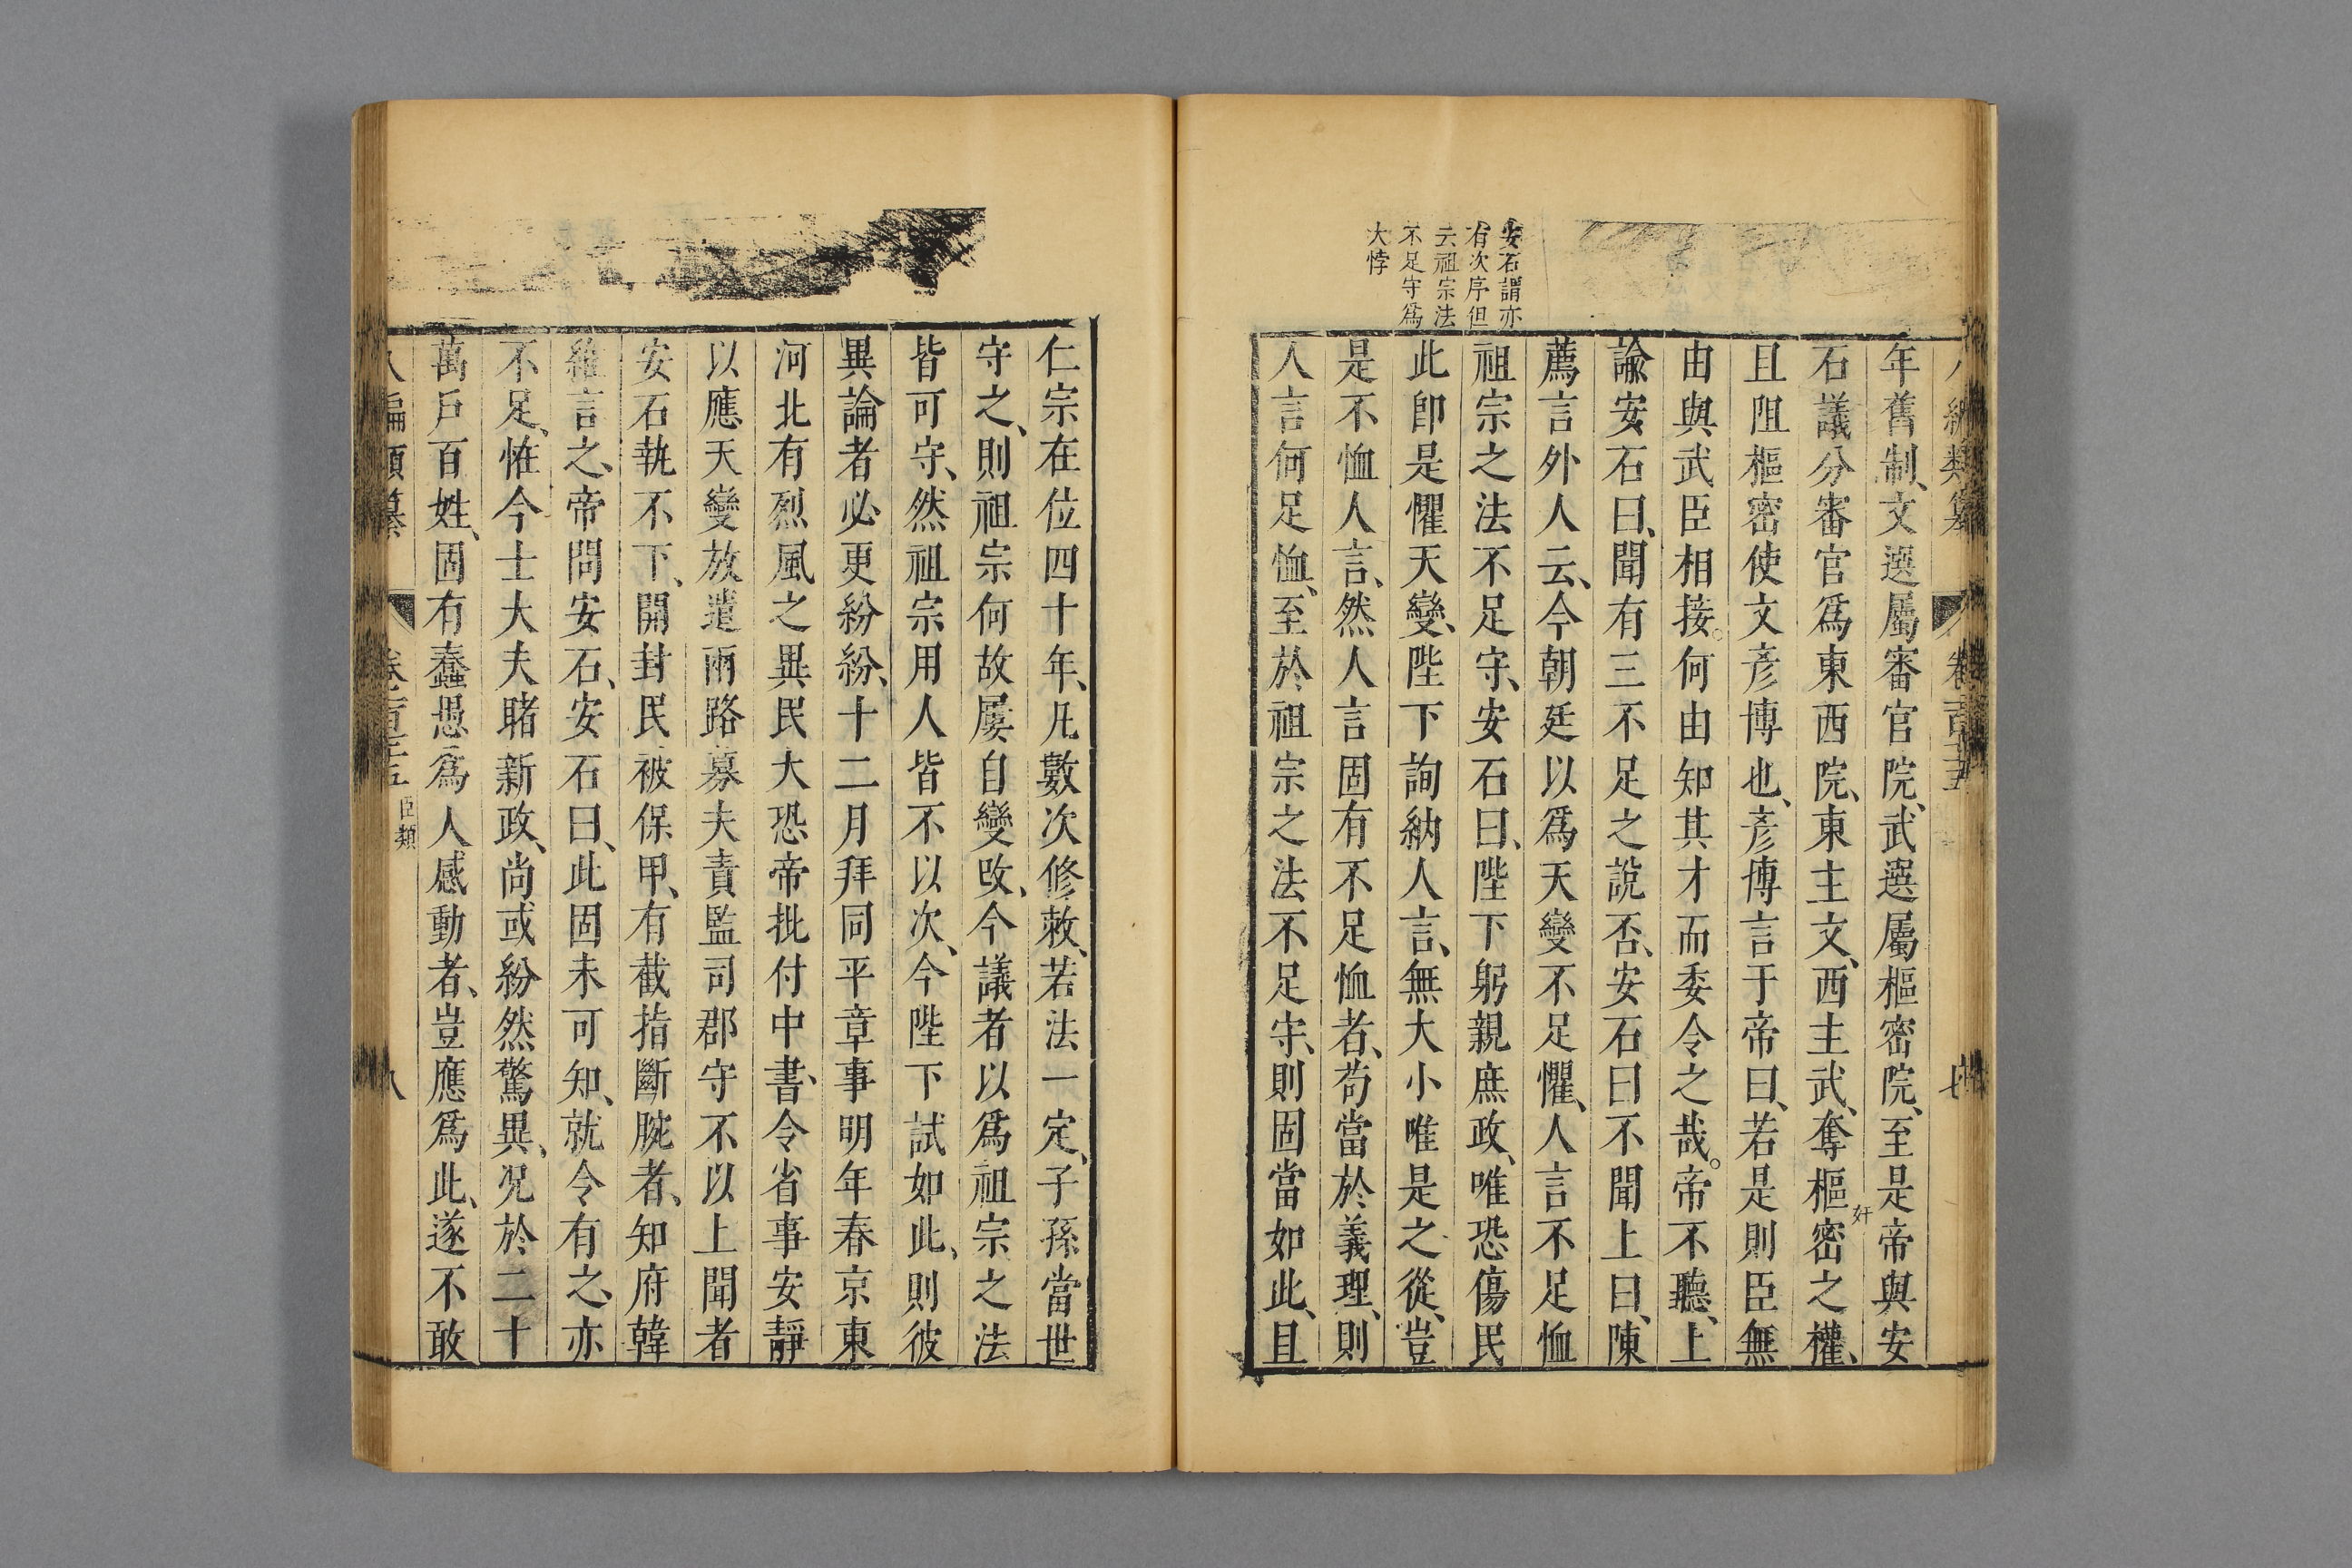 安石謂亦
有次序但
云祖宗法
不足守爲
大悖
年舊制、文選屬審官院、武選屬樞密院、至是帝與安
石議分審官爲東西院、東主文、西主武、奪樞密之權、
奸
且阻樞密使文彥博也、彥博言于帝曰、若是則臣無
由與武臣相接。何由知其才而委令之哉。帝不聽、上
諭安石曰、聞有三不足之說否、安石曰不聞上曰、陳
薦言外人云、今朝廷以爲天變不足懼、人言不足恤
祖宗之法不足守、安石曰、陛下躬親庶政、唯恐傷民
此卽是懼天變、陛下詢納人言、無大小唯是之從、豈
是不恤人言、然人言固有不足恤者、苟當於義理、則
人言何足恤、至於祖宗之法不足守、則固當如此、且
仁宗在位四十年、凡數次修敕、若法一定、子孫當世
守之、則祖宗何故屢自變改、今議者以爲祖宗之法
皆可守、然祖宗用人皆不以次、今陛下試如此、則彼
異論者必更紛紛、十二月拜同平章事明年春京東
河北有烈風之異民大恐帝批付中書、令省事安靜
以應天變放遣兩路募夫責監司郡守不以上聞者
安石執不下、開封民被保甲、有截指斷腕者、知府韓
維言之、帝問安石、安石曰、此固未可知、就令有之、亦
不足、怪今士大夫睹新政、尚或紛然驚異、況於二十
萬戶百姓、固有蠢愚爲人感動者、豈應爲此、遂不敢
八編類纂 臣類 八